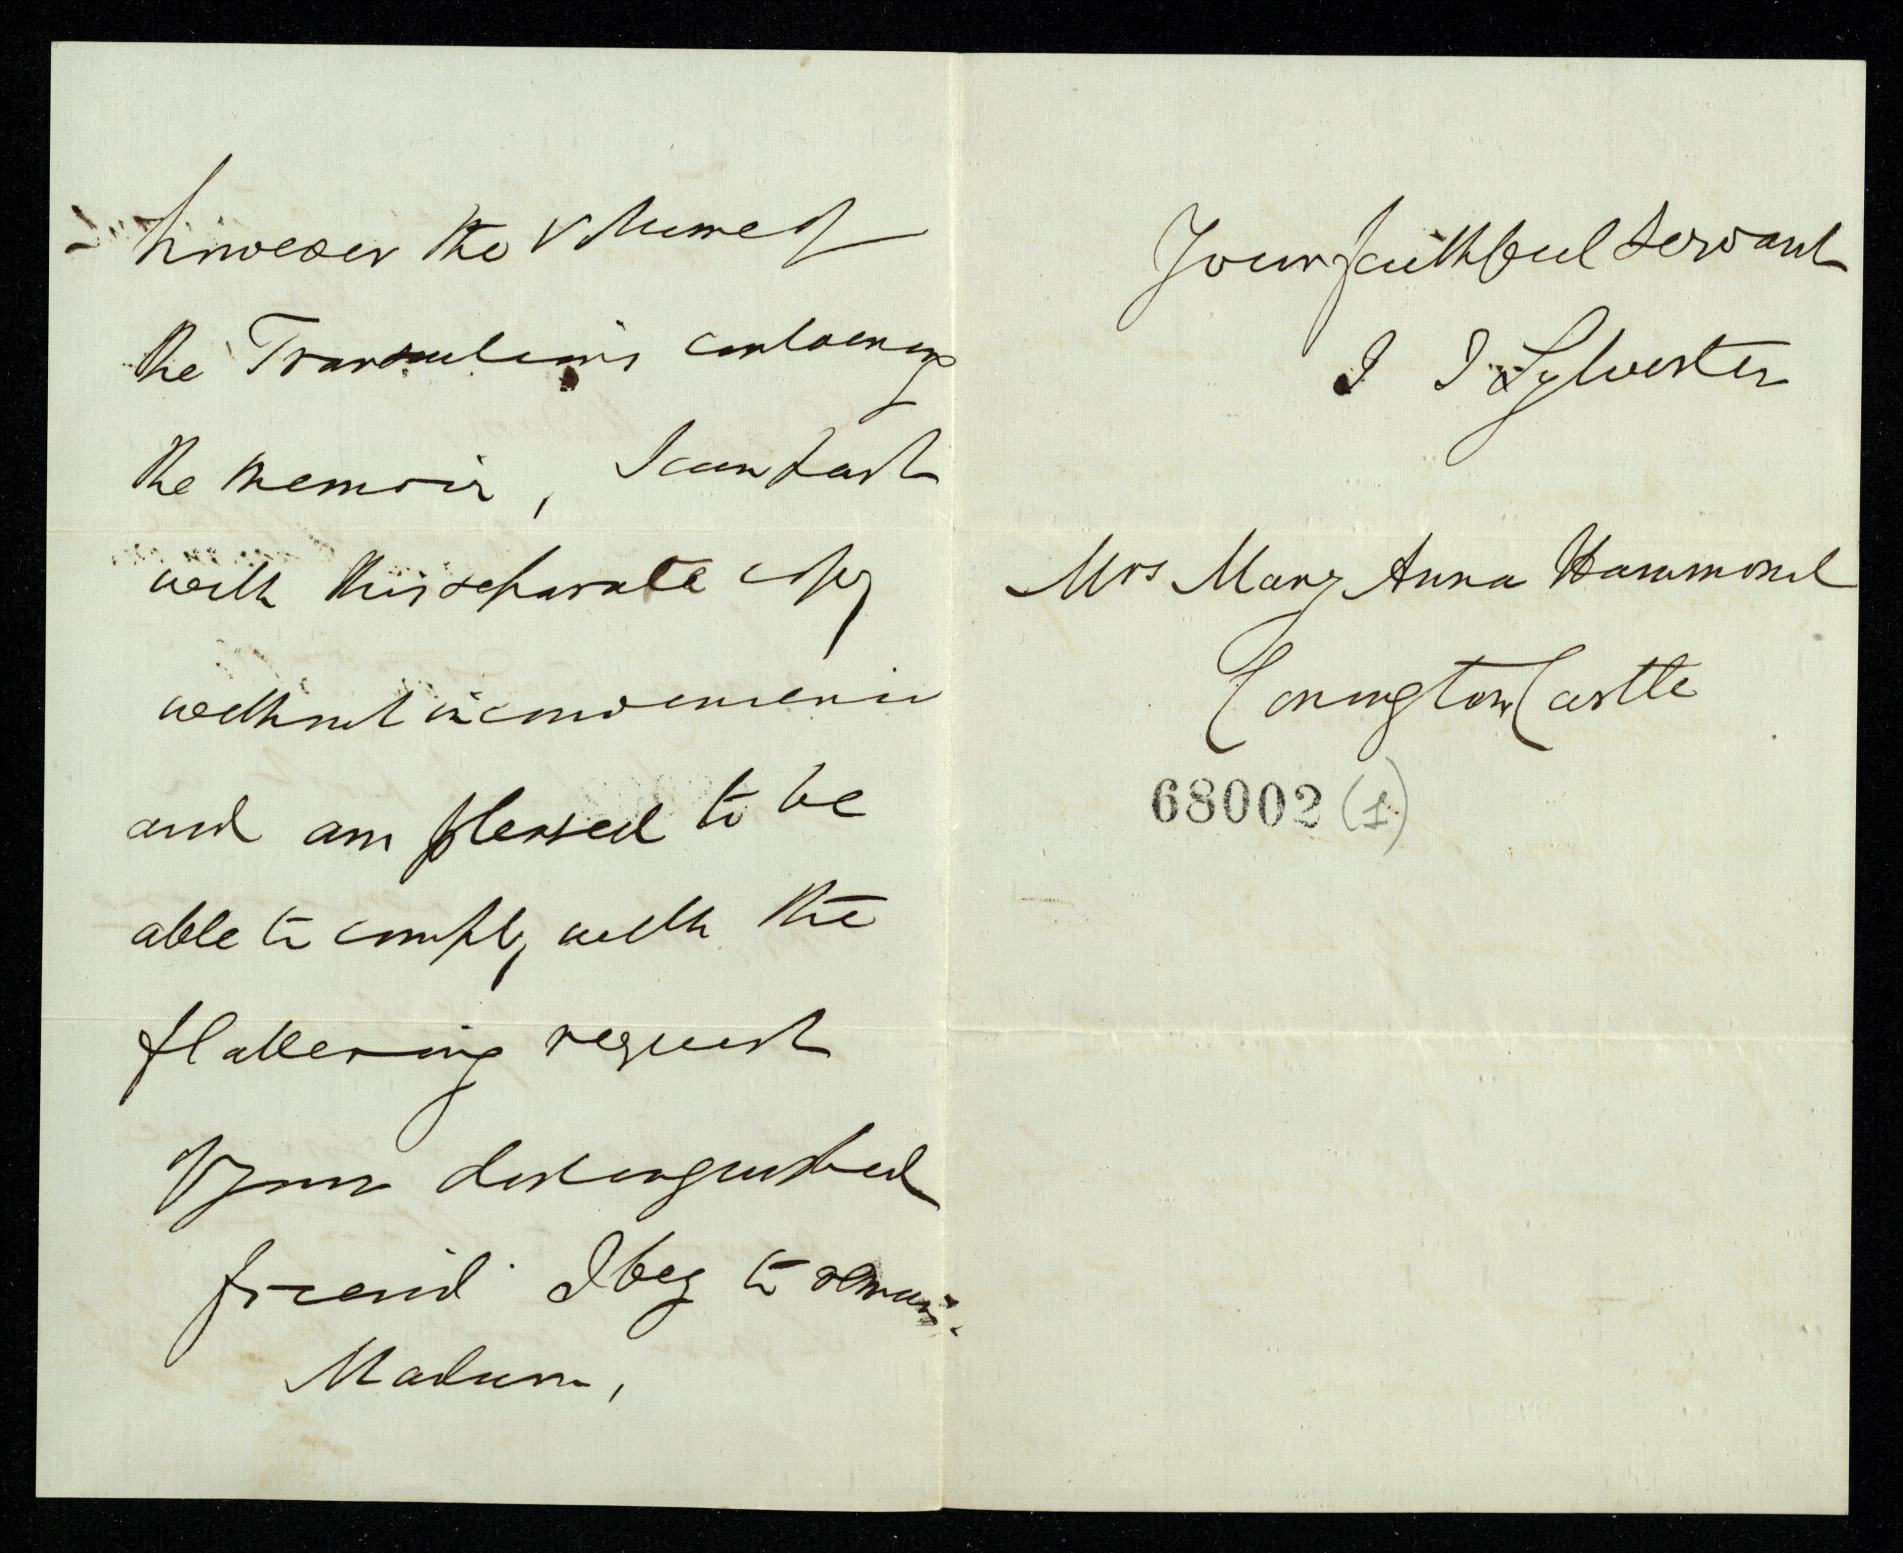 however the volume of
the Transactions containing
the memoir, I can part
with this separate copy
without inconvenience
and am pleased to be
able to comply with the
flattering request
of your distinguished
friend I beg to remain
Madam,
Your faithful servant
J J Sylvester
Mrs Mary Anna Hammond
Conington Castle
68002 (1)